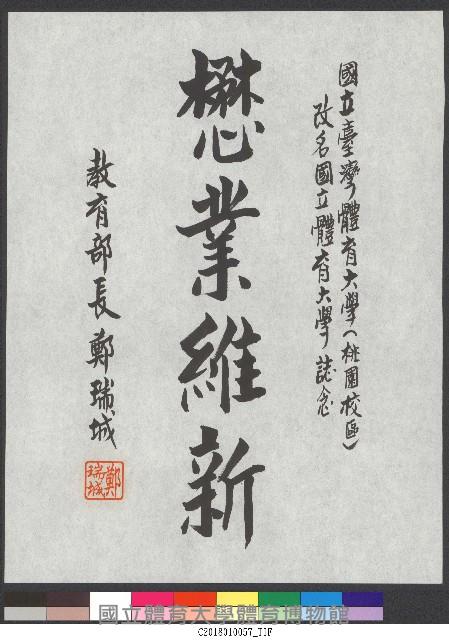 國立臺灣體育大學(桃園校區)
改名國立體育大學誌念
懋業維新
教育部長鄭瑞城
鄭瑞城
國立體育大學體育博物館
C2018010057_TIF